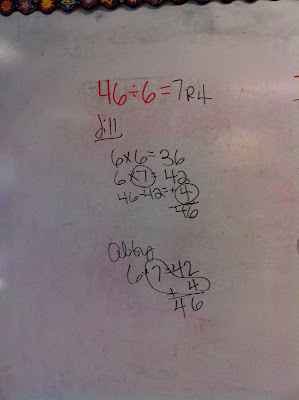 46÷6=7R4
Jill
6×6=36
6×7=42
46-42=+4
46
Abby
6×7=42
+ 4
46